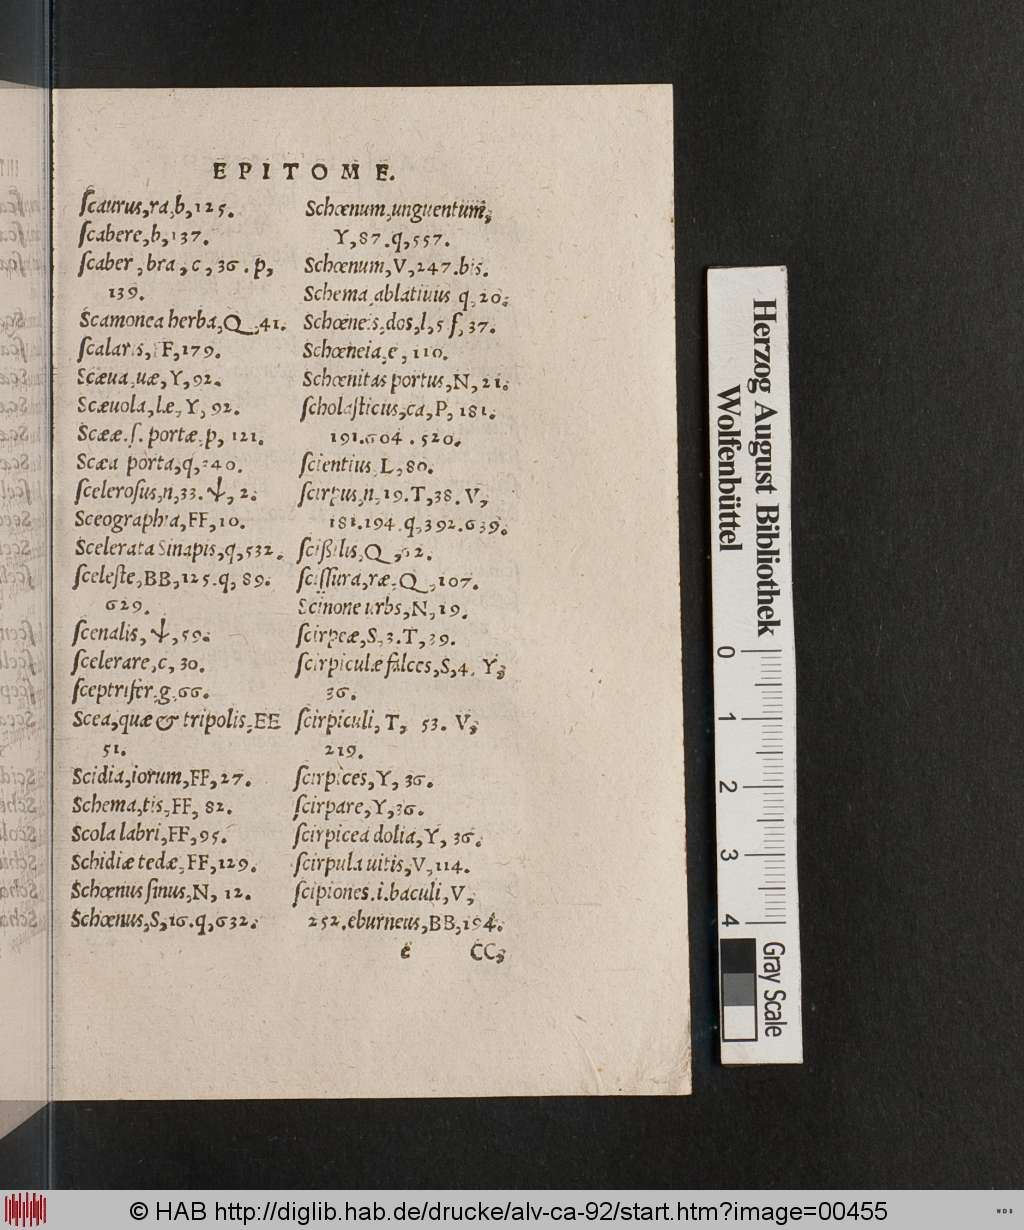 EPITOME.
ſcaurus,ra,b,125.
ſcabere,b,137.
ſcaber,bra,c,36.p,
139.
Scamonea herba,Q,41.
ſcalaris,FF,179.
Scæua,uæ,Y,92.
Scæuola,læ,Y,92.
Scææ.ſ.portæ,p,121.
Scæa porta,q,240.
ſceleroſus,n,33.ↆ,2.
Sceographia,FF,10.
Scelerata Sinapis,q,532.
ſceleſte,BB,125.q,89.
629.
ſcenalis,ↆ,59.
ſcelerare,c,30.
ſceptrifer,g,66.
Scea,quæ & tripolis,EE
51.
Scidia,iorum,FF,27.
Schema,tis,FF,82.
Scola labri,FF,95.
Schidiæ tedæ,FF,129.
Schœnus ſinus,N,12.
Schœnus,S,16.q,632.
Schœnum,unguentum,
Y,87.q,557.
Schœnum,V,247.bis.
Schema,ablatiuus q,20.
Schœneis,dos,l,5 f,37.
Schœneia,e,110.
Schœnitas portus,N,21.
ſcholaſticus,ca,P,181.
191.604.520.
ſcientius,L,80.
ſcirpus,n,19.T,38.V,
181.194.q,392.639.
ſciſsilis,Q,62.
ſciſſura,ræ,Q,107.
Scinone urbs,N,19.
ſcirpeæ,S,3.T,39.
ſcirpiculæ falces,S,4,Y,
36.
ſcirpiculi,T,53.V,
219.
ſcirpices,Y,36.
ſcirpare,Y,36.
ſcirpicea dolia,Y,36.
ſcirpula uitis,V,114.
ſcipiones.i.baculi,V,
252.eburneus,BB,194.
c CC,
Herzog August Bibliothek
Wolfenbüttel
0 1 2 3 4
Gray Scale
© HAB http://diglib.hab.de/drucke/alv-ca-92/start.htm?image=00455
WDB